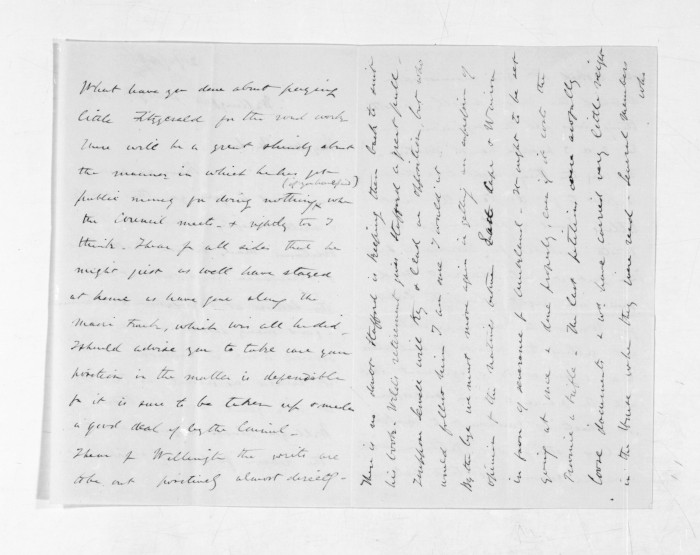 What have you done about paying
little Fitzgerald for the road work
There will be a great shindy about
the manner in which he has got
(if you have paid)
public money for doing nothing when
the Council meets - & rightly too I
think. I hear fr all sides that he
might just as well have stayed
at home as have gone along the
Maori track, which was all he did.
I should advise you to take care your
position in the matter is defensible
for it is sure to be taken up & made
a good deal of by the Council -
I hear fr Wellington the writs are
to be out positively almost directly -
There is no doubt Stafford is keeping them back to suit
his book. Weld's retirement gives Stafford a great pull -
I suppose Sewell will try & lead an opposition, but who
would follow him I am sure I wouldn't.
By the bye we must move again in getting an expression of
opinion of the natives between East Cape & Wairoa
in favor of severance fr Auckland - It ought to be set
going at once & done properly, even if it costs the
Province a trifle - The last petitions were awfully
loose documents & wd. have carried very little weight
in the House when they were read - Several members
who